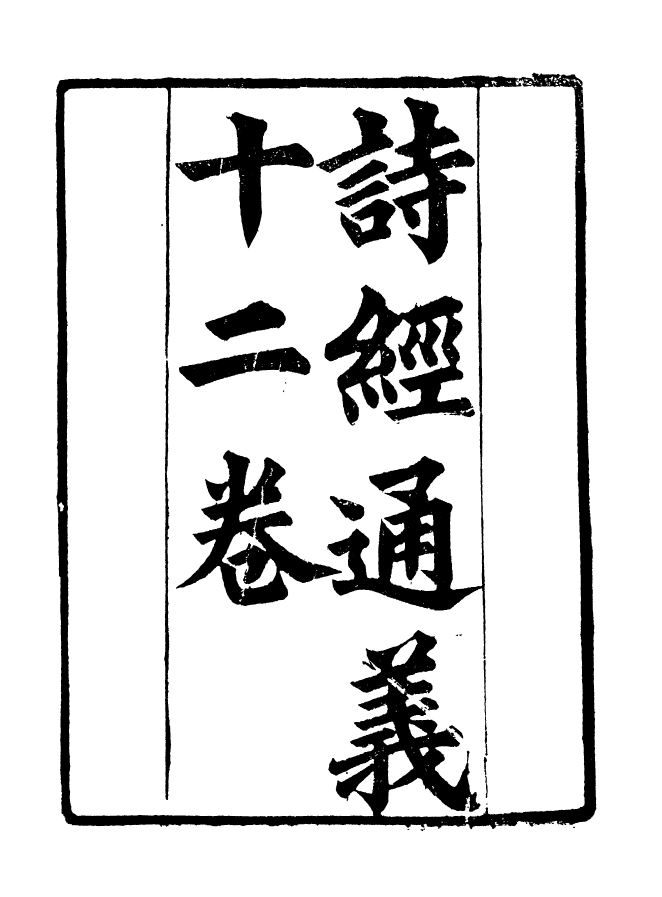 詩經通義
十二卷